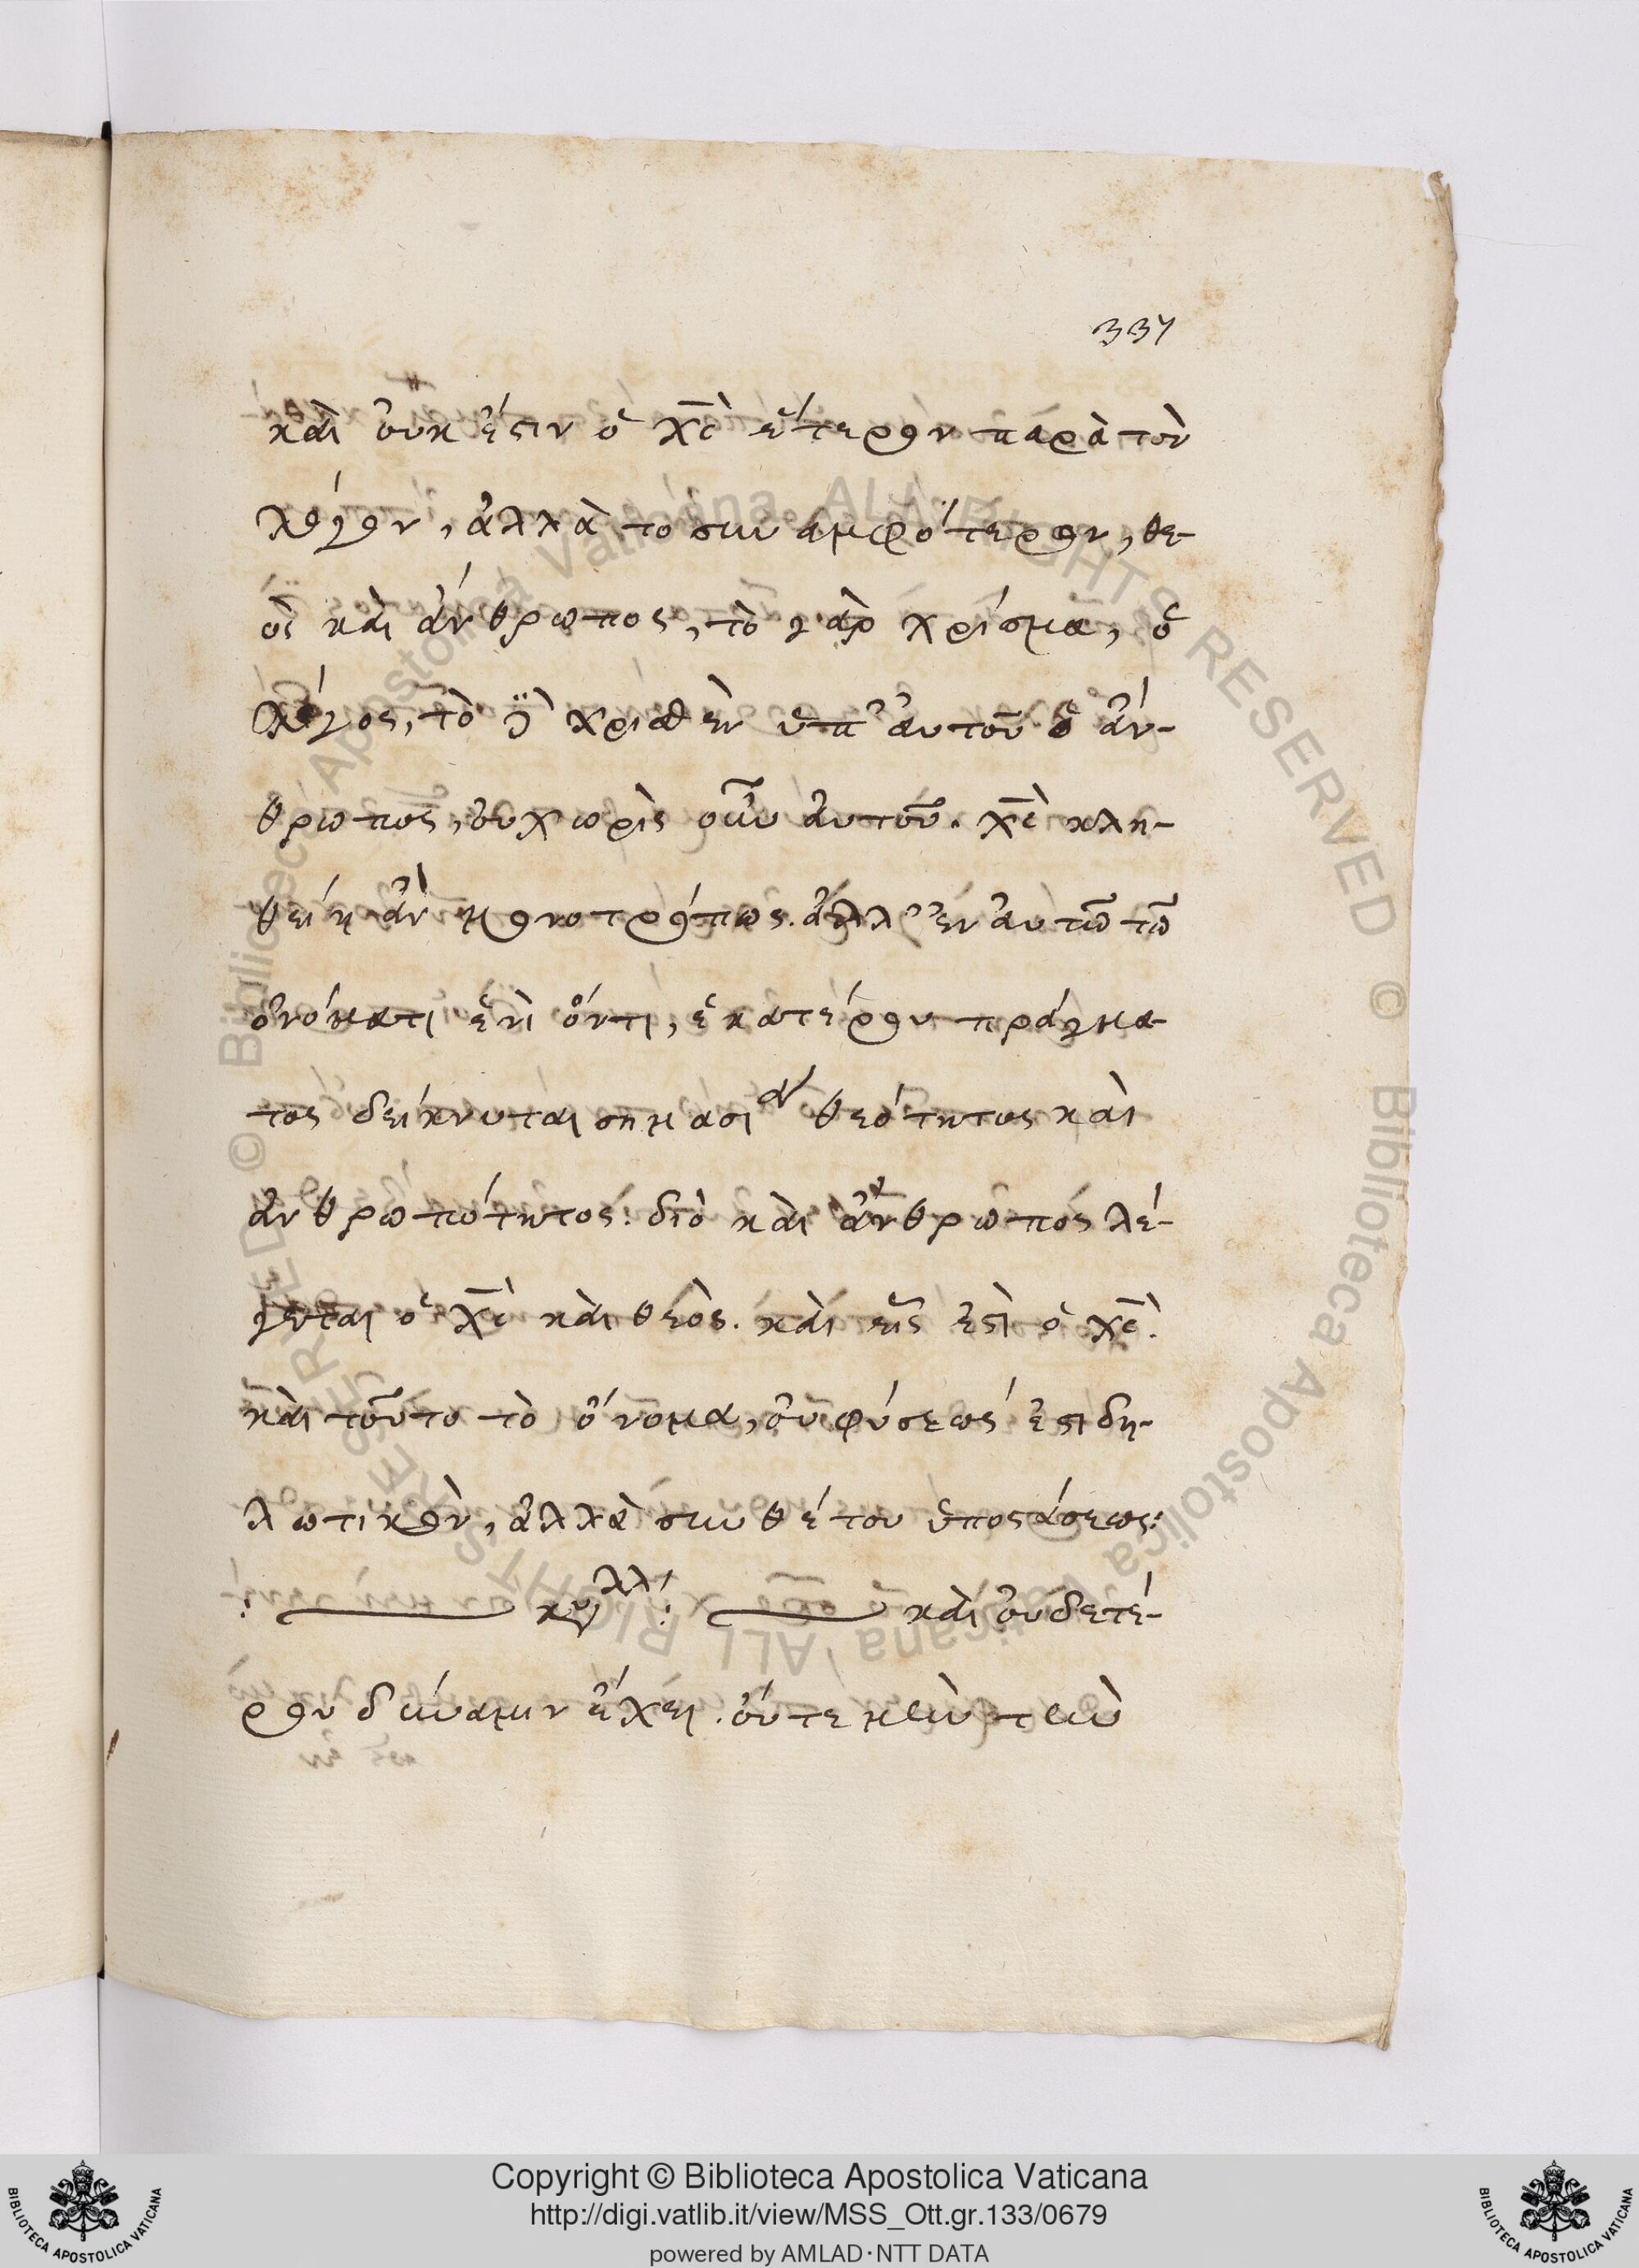 337
καὶ οὐκ ἔστιν ὁ χ̅ς̅ ἕτερον παρὰ τὸν
λόγον, ἀλλὰ το συναμφότερον, θε-
ὸς καὶ ἄνθρωπος, τὸ γὰρ χρίσμα, ὁ
λόγος, τὸ δὲ χρισθὲν ὑπ' αὐτοῦ ὁ ἄν-
θρωπος, οὐ χωρὶς οὖν αὐτοῦ. χ̅ς̅ κλη-
θείη ἂν μονοτρόπως. ἀλλ' ἐν αὐτῶ τῶ
ὀνόματι ἑνὶ ὄντι, ἑκατέρου πράγμα-
τος δείκνυται σημασίαν θεότητος καὶ
ἀνθρωπότητος: διὸ καὶ ἄνθρωπος λέ-
γεται ὁ χ̅ς̅ καὶ θεὸς. καὶ εἷς ἐστὶ ὁ χ̅ς̅.
καὶ τοῦτο τὸ ὄνομα, οὐ φύσεώς ἐστι δη-
λωτικὸν, ἀλλὰ συνθέτου ὑποστάσεως:
: κυλλ : καὶ οὐδετέ-
ρου δύναμιν ἔχει. οὔτε μὲν τὴν
Copyright © Biblioteca Apostolica Vaticana
http://digi.vatlib.it/view/MSS_Ott.gr.133/0679
powered by AMLAD·NTT DATA
BIBLIOTECA APOSTOLICA VATICANA
BIBLIOTECA APOSTOLICA VATICANA